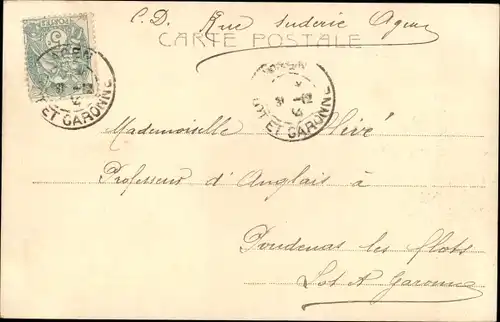 C. D. Rue Suderie Agen
CARTE POSTALE
AGEN
LOT ET GARONNE
AGEN
LOT ET GARONNE
Mademoiselle Hévé
Professeur d'Anglais à
Poudenas les flots
Lot & Garonne